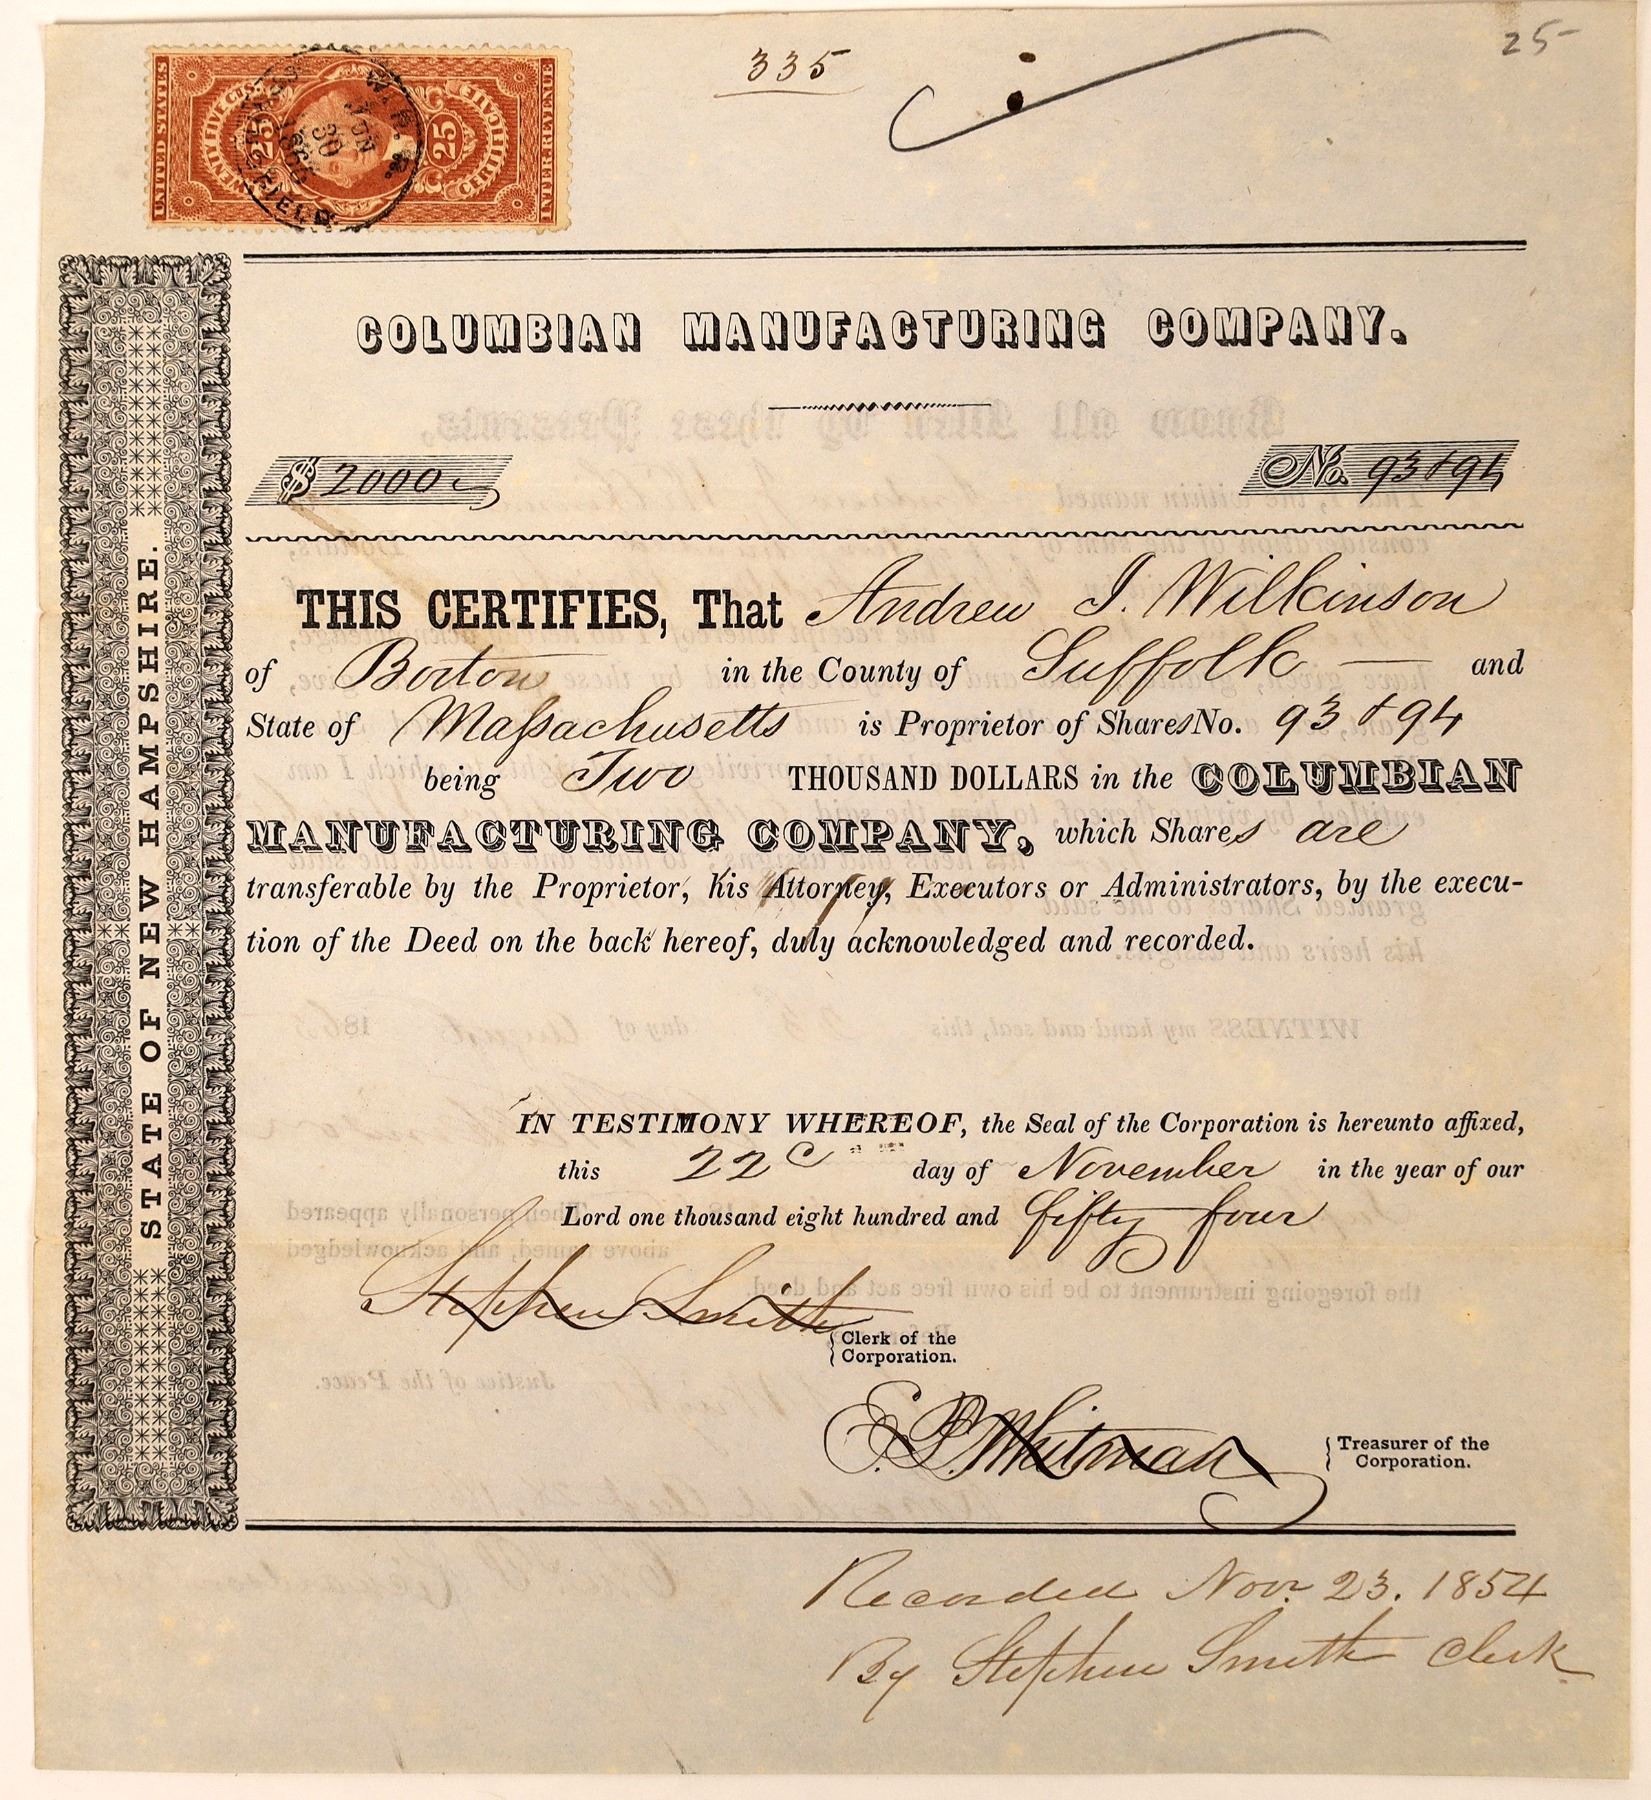 335
25-
UNITED STATES
TWENTY FIVE CTS.
25
25
CERTIFICATE
INTER. REVENUE
JUN
30
COLUMBIAN MANUFACTURING COMPANY.
$ 2000
No. 93 & 94
STATE OF NEW HAMPSHIRE.
THIS CERTIFIES, That Andrew J. Wilkinson
of Boston in the County of Suffolk — and
State of Massachusetts is Proprietor of Shares No. 93 & 94
being Two THOUSAND DOLLARS in the COLUMBIAN
MANUFACTURING COMPANY, which Shares are
transferable by the Proprietor, his Attorney, Executors or Administrators, by the execu-
tion of the Deed on the back hereof, duly acknowledged and recorded.
IN TESTIMONY WHEREOF, the Seal of the Corporation is hereunto affixed,
this 22 day of November in the year of our
Lord one thousand eight hundred and fifty four
Stephen Smith
Clerk of the
Corporation.
E. P. Whitman
Treasurer of the
Corporation.
Recorded Nov. 23. 1854
By Stephen Smith Clerk